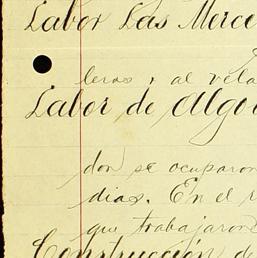 Labor Las Merce
leras y al vela
Labor de Algo
don se ocuparon
dias. En el
que trabajaron
Construcción de